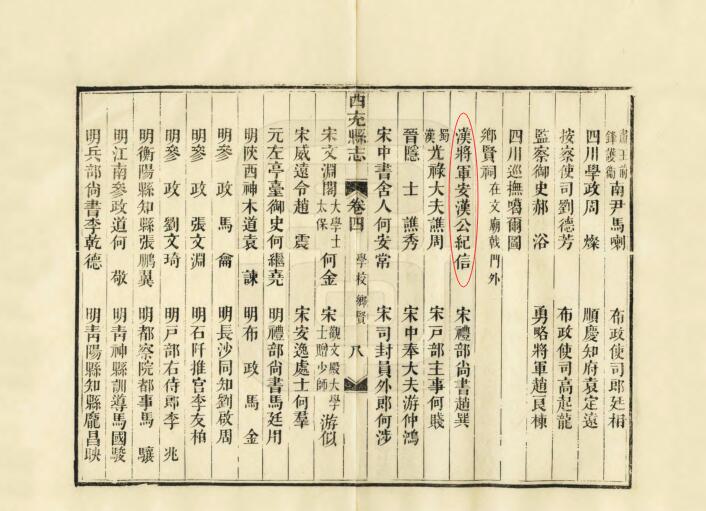 畫王前鋒護衛南尹馬喇 布政使司郎廷相
四川學政周燦 順慶知府袁定遠
按察使司劉德芳 布政使司高起龍
監察御史郝浴 勇略將軍趙良棟
四川巡撫噶爾圖
鄉賢祠在文廟戟門外
漢將軍安漢公紀信 宋禮部尚書趙巽
蜀漢光祿大夫譙周 宋戸部主事何賤
晉隱士譙秀 宋中奉大夫游仲鴻
宋中書舍人何安常 宋司封員外郎何涉
西充縣志 卷四 學校 鄉賢 八
宋文淵閣大學士太保何金 宋觀文殿大學士贈少師游似
宋威遠令趙震 宋安逸處士何羣
元左亭臺御史何繼堯 明禮部尚書馬廷用
明陝西神木道袁諫 明布政馬金
明參政馬龠 明長沙同知劉啟周
明參政張文淵 明石阡推官李友柏
明參政劉文琦 明戸部右侍郎李兆
明衡陽縣知縣張鵬翼 明都察院都事馬驤
明江南參政道何敬 明青神縣訓導馬國駿
明兵部尚書李乾德 明青陽縣知縣龐昌